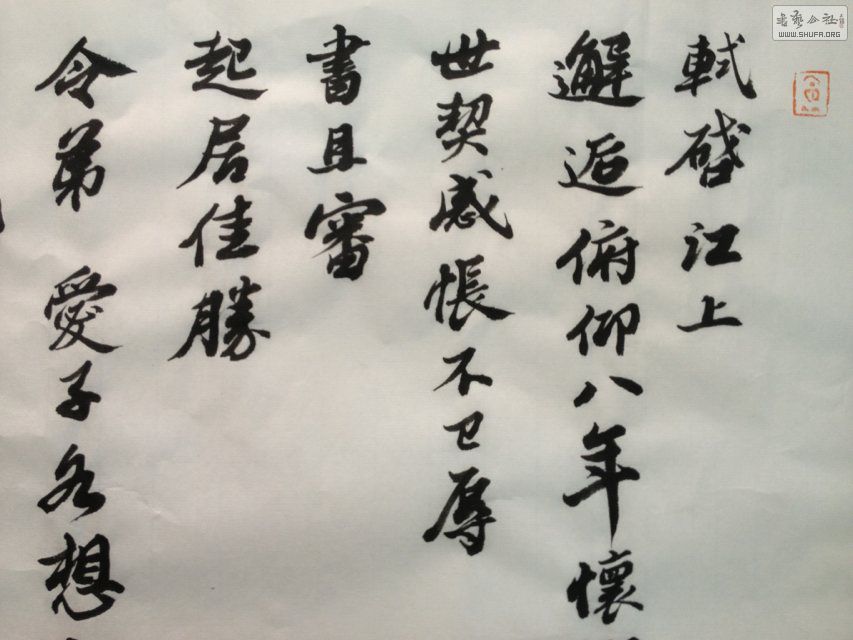 軾啓江上
邂逅俯仰八年懷
世契感悵不已辱
書且審
起居佳勝
令弟愛子各想
WWW.SHUFA.ORG